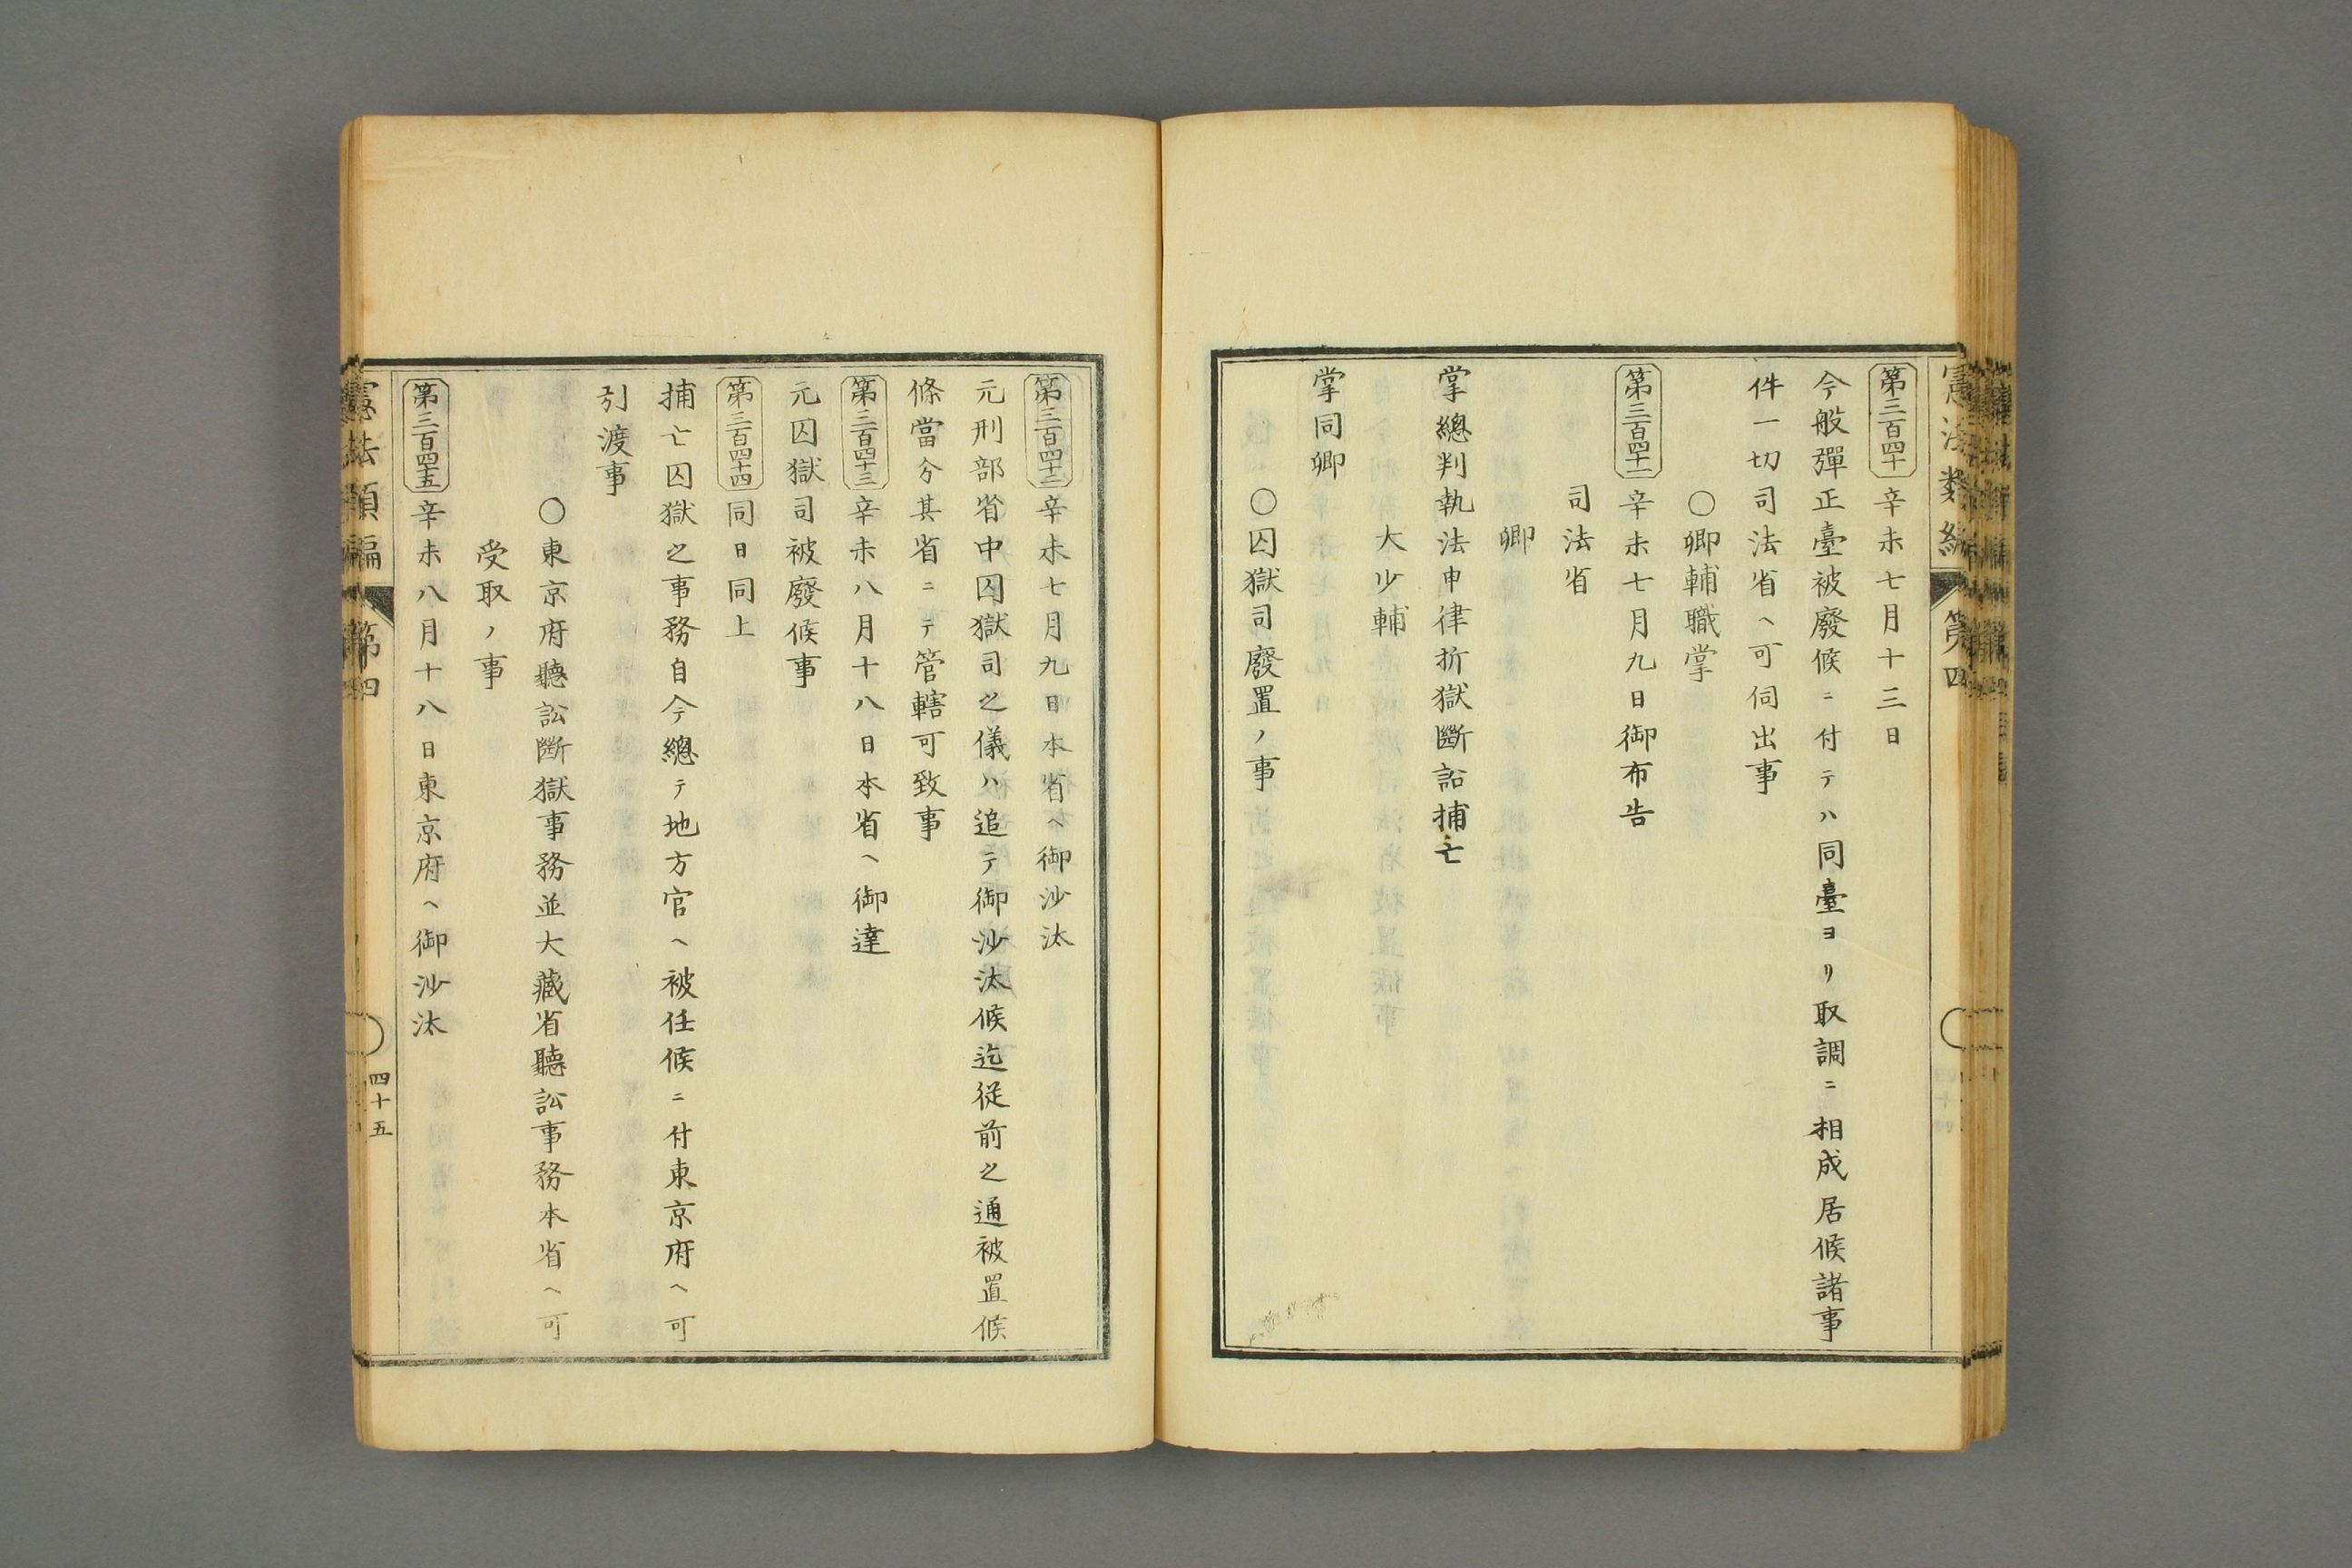 憲法類編 第四
第三百四十 辛未七月十三日
今般彈正臺被廢候ニ付テハ同臺ヨリ取調ニ相成居候諸事
件一切司法省ヘ可伺出事
○卿輔職掌
第三百四十一 辛未七月九日御布告
司法省
卿
掌總判執法申律折獄斷訟捕亡
大少輔
掌同卿
○囚獄司廢置ノ事
第三百四十二 辛未七月九日本省ヘ御沙汰
元刑部省中囚獄司之儀ハ追テ御沙汰候迄從前之通被置候
條當分其省ニテ管轄可致事
第三百四十三 辛未八月十八日本省ヘ御達
元囚獄司被廢候事
第三百四十四 同日同上
捕亡囚獄之事務自今總テ地方官ヘ被任候ニ付東京府ヘ可
引渡事
○東京府聽訟斷獄事務並大藏省聽訟事務本省ヘ可
受取ノ事
第三百四十五 辛未八月十八日東京府ヘ御沙汰
憲法類編 第四 四十五